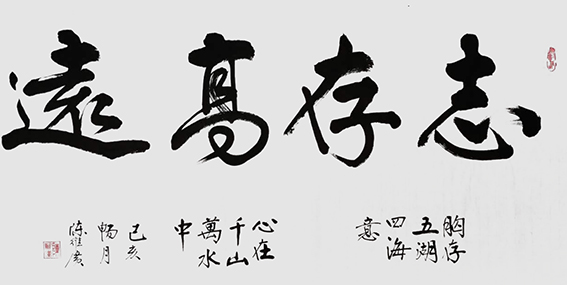 志存高遠
胸存
五湖
四海
意
心在
千山
萬水
中
己亥
畅月